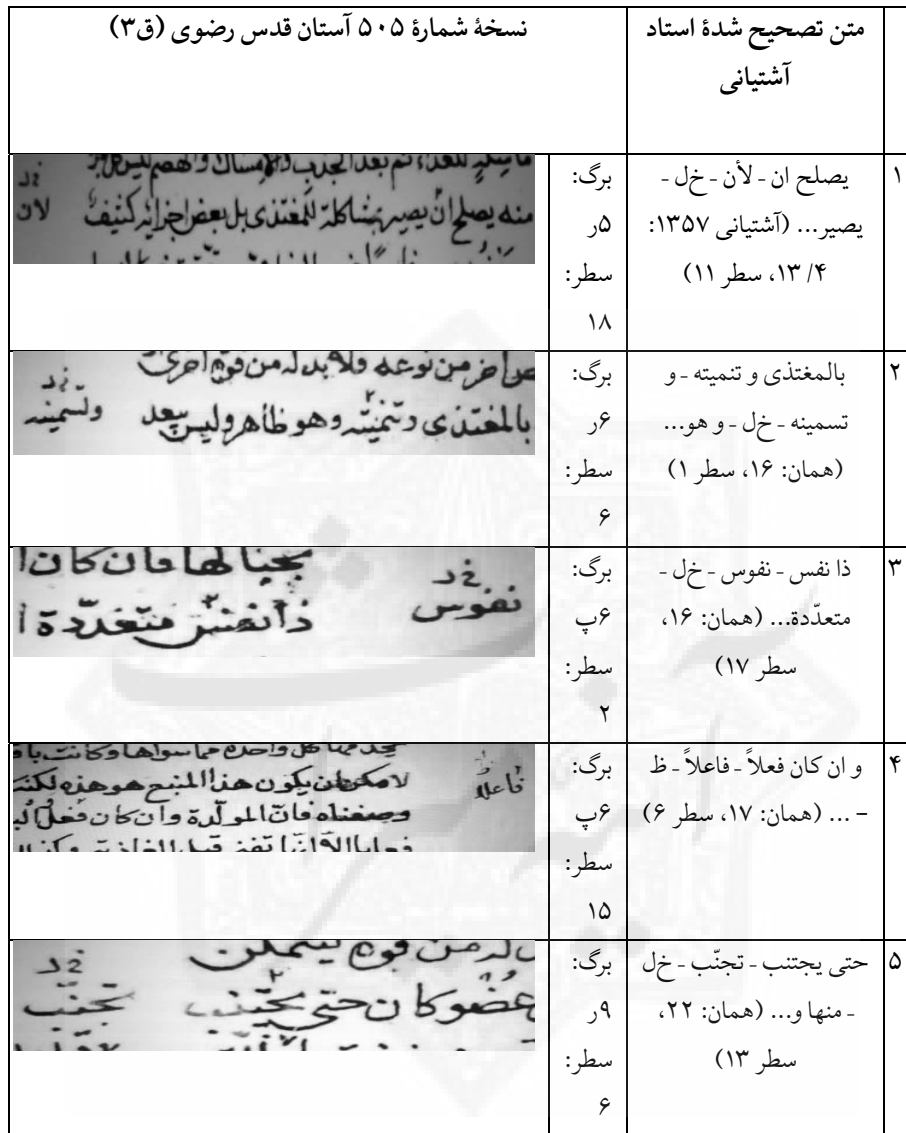 متن تصحیح شدهٔ استاد
آشتیانی
نسخهٔ شمارهٔ ۵۰۵ آستان قدس رضوی (ق۳)
۱
یصلح ان ـ لأن ـ خ‌ل ـ
یصیر... (آشتیانی ۱۳۵۷:
۴/ ۱۳، سطر ۱۱)
برگ:
۵ر
سطر:
۱۸
ثم بعد الجذب والامساك والهضم لیس
منه یصلح ان یصیر بمشاکلة للمغتذی بل بعض اجزائه کثیف
لان
۲
بالمغتذی و تنمیته ـ و
تسمینه ـ خ‌ل ـ و هو...
(همان: ۱۶، سطر ۱)
برگ:
۶ر
سطر:
۶
آخر من نوعه فلا بد له من قوة اخری
بالمغتذی وتنمیته وهو ظاهر ولیس یبعد
وتسمینه
۳
ذا نفس ـ نفوس ـ خ‌ل ـ
متعدّدة... (همان: ۱۶،
سطر ۱۷)
برگ:
۶پ
سطر:
۲
فان کان
ذا نفس متعدّدة
نفوس
۴
و ان کان فعلاً ـ فاعلاً ـ ظ
- ... (همان: ۱۷، سطر ۶)
برگ:
۶پ
سطر:
۱۵
کل واحدة مما سواها وکانت
یکون هذا المنبع هو هذه
وصفناه فانّ المولّدة وان کان فعل
فاعلا
۵
حتی یجتنب ـ تجنّب ـ خ‌ل
ـ منها و... (همان: ۲۲،
سطر ۱۳)
برگ:
۹ر
سطر:
۶
له من قوة
عضو کان حتی یجتنب
تجنّب